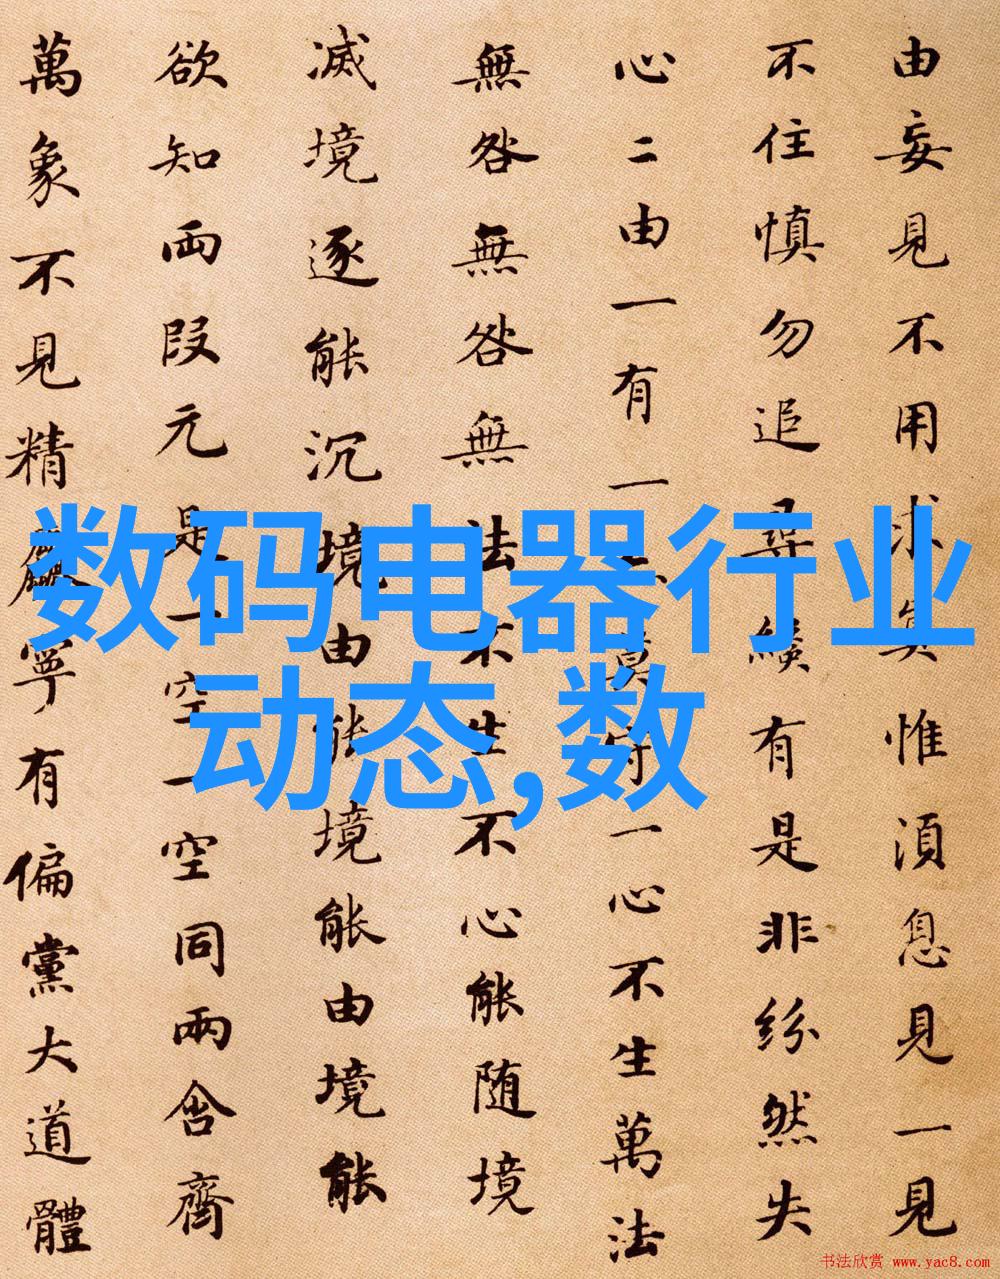 由妄見不用求真惟湏息見一見
不住慎勿追尋纔有是非紛然失
心二由一有一亦莫守一心不生萬法
無咎無咎無法不生不心能随境
滅境逐能沉境由能境能由境能
欲知兩段元是一空一空同兩含齊
萬象不見精麁寧有偏黨大道體
数码电器行业
动态,数
书法欣赏 www.yac8.com